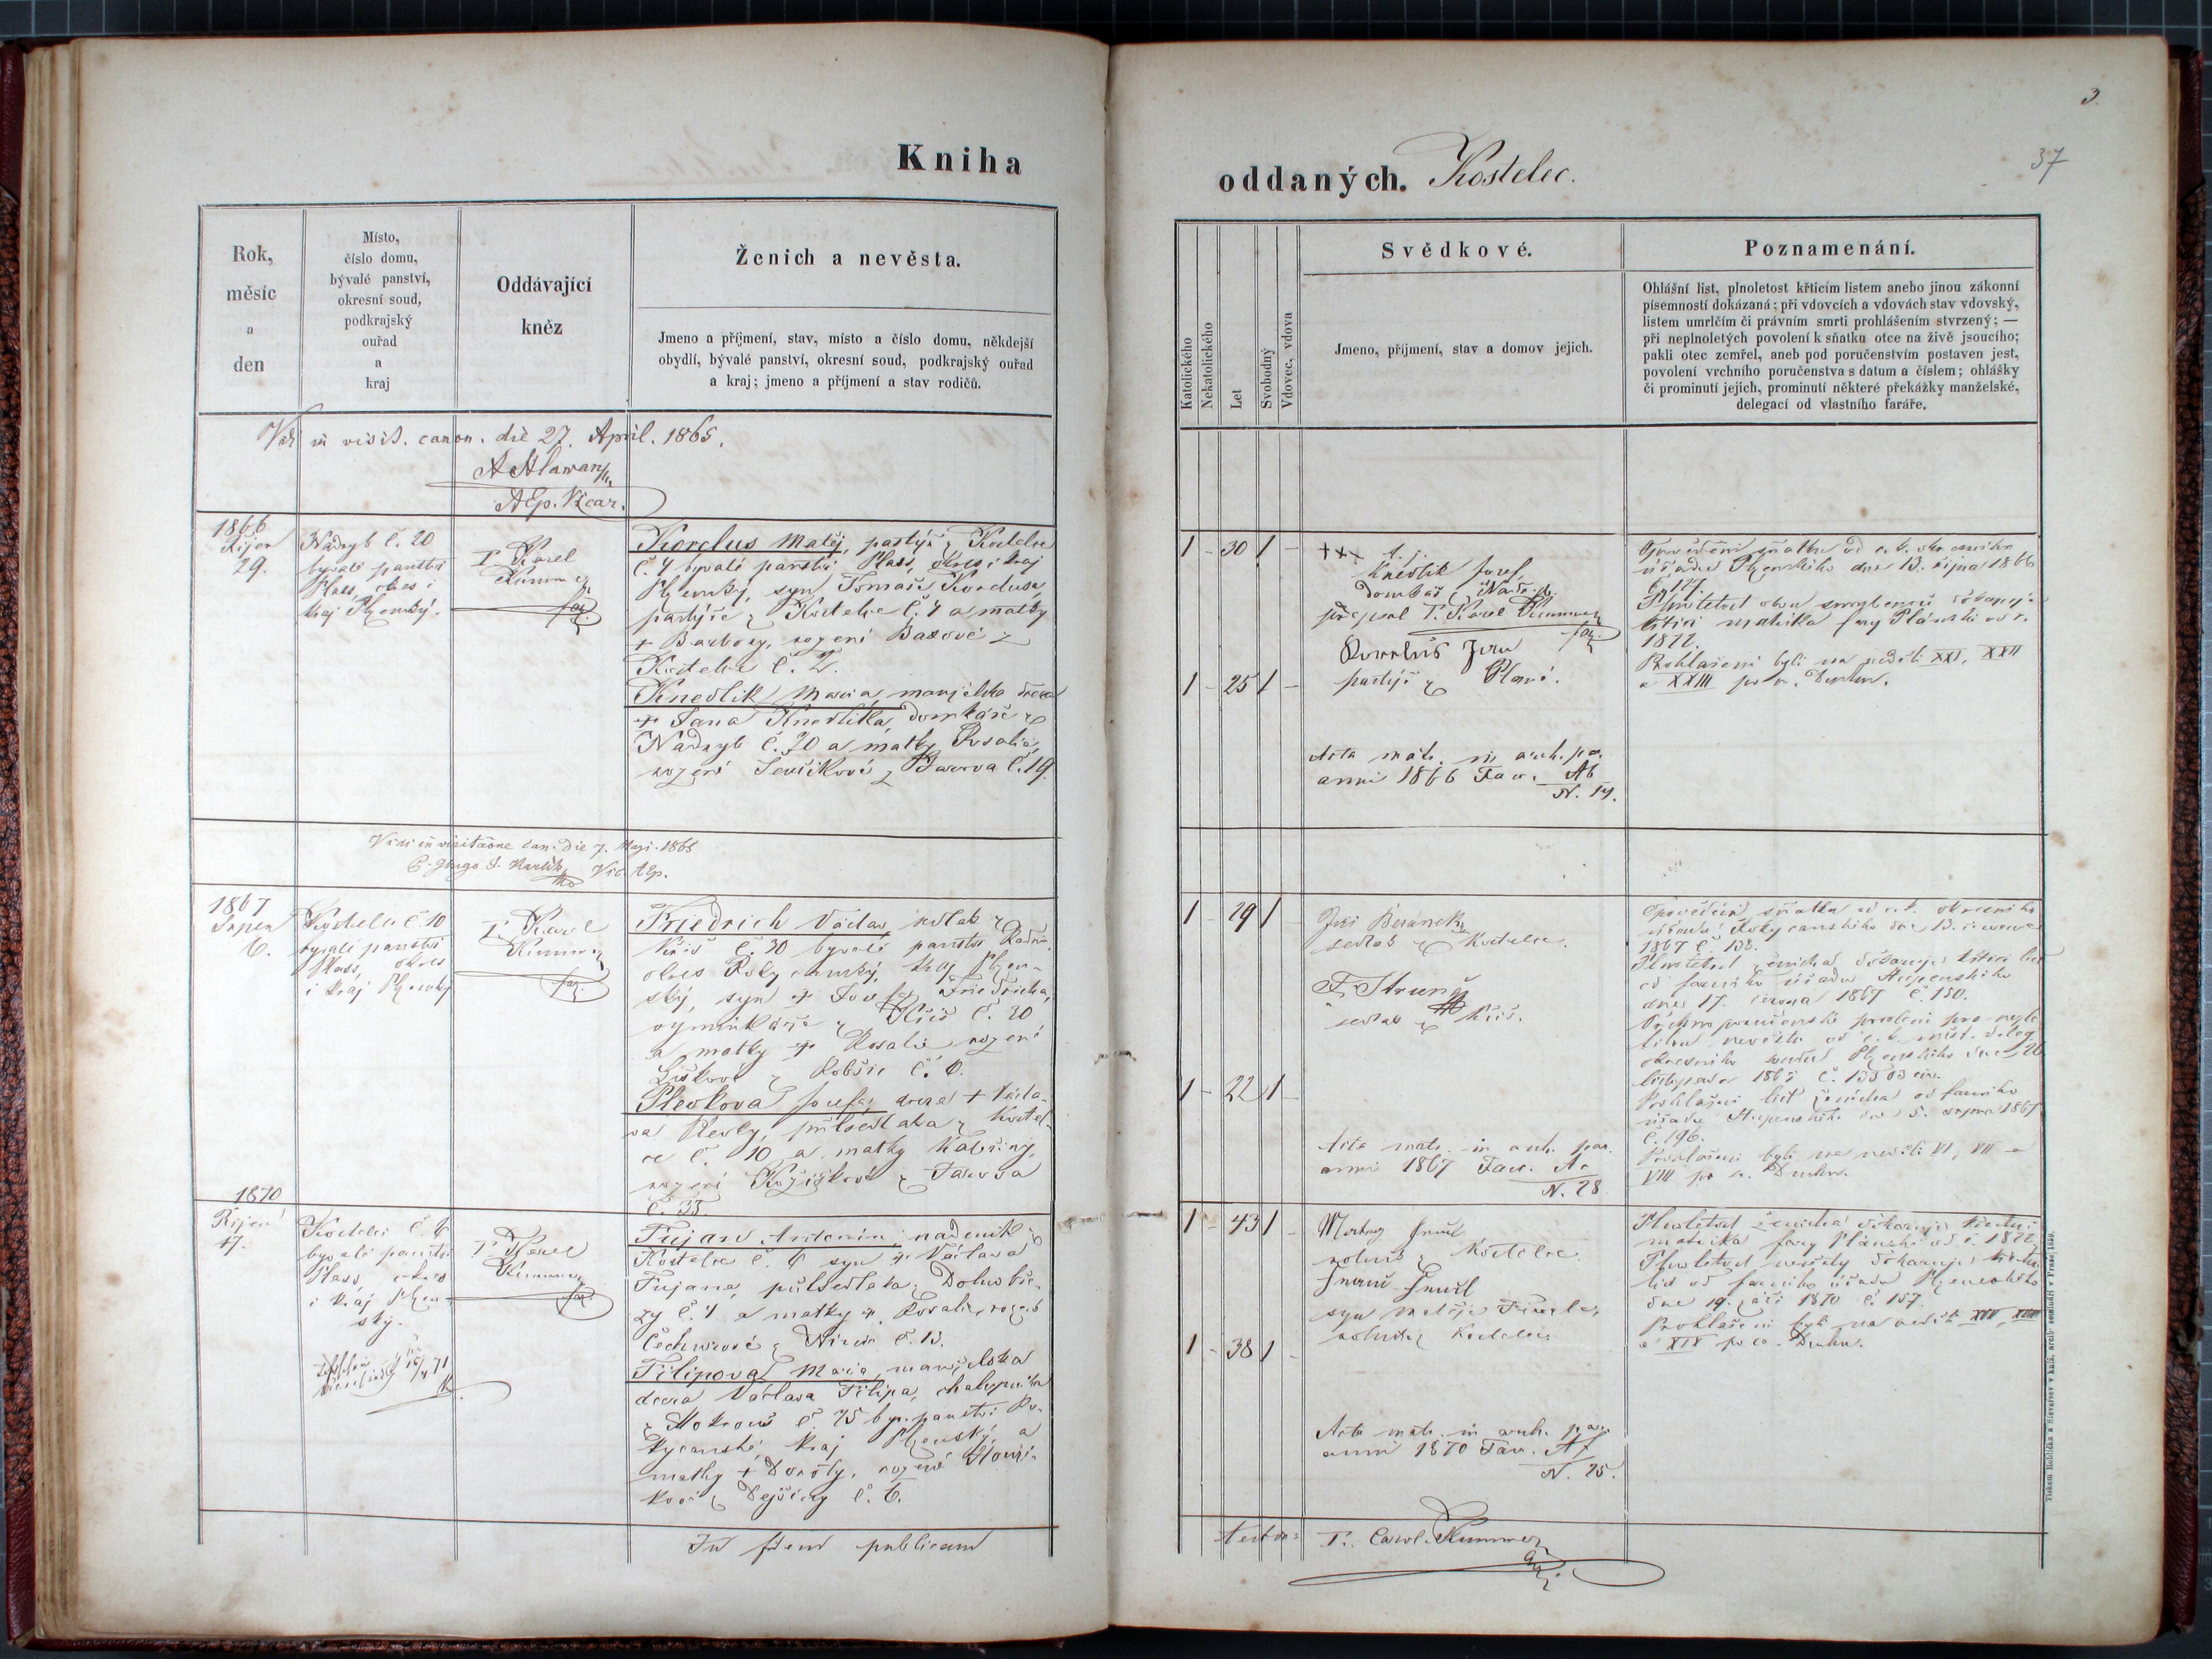 3.
37
Kniha
oddaných. Kostelec.
Rok,
měsíc
a
den
Místo,
číslo domu,
bývalé panství,
okresní soud,
podkrajský
ouřad
a
kraj
Oddávající
kněz
Ženich a nevěsta.
Jmeno a příjmení, stav, místo a číslo domu, někdejší
obydlí, bývalé panství, okresní soud, podkrajský ouřad
a kraj; jmeno a příjmení a stav rodičů.
Katolického
Nekatolického
Let
Svobodný
Vdovec, vdova
Svědkové.
Jmeno, příjmení, stav a domov jejich.
Poznamenání.
Ohlášní list, plnoletost křticím listem anebo jinou zákonní
písemností dokázaná; při vdovcích a vdovách stav vdovský,
listem umrlčím či právním smrti prohlášením stvrzený; —
při neplnoletých povolení k sňatku otce na živě jsoucího;
pakli otec zemřel, aneb pod poručenstvím postaven jest,
povolení vrchního poručenstva s datum a číslem; ohlášky
či prominutí jejich, prominutí některé překážky manželské,
delegací od vlastního faráře.
Vidi in visit. canon. die 27. April. 1865.
AEp. Vicar.
1866
Říjen
29.
Nadryb č. 20
bývalé panství
Plass, okres i
kraj Plzenský.
P. Karel
Kummer
far.
Kordus Matěj, pastýř z Kostelce
č. 4 bývalé panství Plass, okres i kraj
Plzenský, syn Tomaše Kordusa,
pastýře z Kostelce č. 4 a matky
+ Barbory, rozené Baxové z
Kostelce č. 2.
Knedlik Maria manželska dcera
+ Jana Knedlika, domkáře z
Nadryb č. 20 a matky Rosalie,
rozené Ševčikové z Javora č. 19
1 - 30 1 -
+++ t. j.
Knedlik Josef,
domkář z Nadryb
přepsal P. Karel Kummer
far.
Jan
pastýř z Plané.
1 - 25 1 -
Acta matr. in arch. par.
anni 1866 Fasc. Ab
N. 14.
úřadu Plzenského dne 13. října 1866
křticí matrika fary Plánské od r.
1822.
Prohlašeni byli na neděli XXI, XXII
a XXIII po sv. Duchu.
Vidi in visitatione can. die 7. Maji 1868
Vic. AEp.
1867
Srpen
6.
Kostelec č. 10
byvalé panství
Plass, okres
i kraj Plzenský
P. Karel
Kummer
far.
Friedrich Václav, sedlak z
Kříš č. 30 byvalé panství Radnic
okres Rokycanský, kraj Plzen-
ský, syn + Josefa Friedricha,
vyminkáře z Kříš č. 30
a matky + Rosalie rozené
Liškové z Robšic č. 6.
Plevkova Josefa, dcera + Václa-
va Plevky, půlsedlaka z Kostel-
ce č. 10 a matky Kateřiny,
rozené Kožiškové z Javora
č. 35.
1 - 29 1 -
Jiří Beránek
sedlák z Kostelce.
F. Strunz
sedlak z Kříš.
1 - 22 1 -
Acta matr. in arch. par.
anni 1867 Fasc. Ac
N. 28
úřadu Rokycanského dne 13. července
1867 č. 138.
od farního úřadu Stupenského
dne 17. června 1867 č. 150.
okresního soudu Plzenského dne 26
listopadu 1865 č. 13503 civ.
Prohlašní list ženicha od farního
úřadu Stupenského dne 5. srpna 1867
č. 196.
Prohlašeni byli na neděli VI, VII a
VIII po sv. Duchu.
1870
Říjen
17.
Kostelec č. 6
byvalé panství
Plass, okres
i kraj Plzen-
ský.
P. Karel
Kummer
far.
Fujan Antonín, nadenik z
Kostelce č. 6 syn + Václava
Fujana, půlsedlaka z Dolno bře-
zy č. 4 a matky + Rosalie, rozené
Čechurové z Nirem č. 13.
Filipova Maria, manželska
dcera Václava Filipa, chalupnika
z Mokrouš č. 25 byv. panství Ro-
kycanské, kraj Plzenský a
matky + Doroty, rozené Slouri-
kové z Dejšiny č. 6.
1 - 43 1 -
Martin Šmul
rolník z Kostelce.
syn Matěje
rolníka z Kostelce
1 - 38 1 -
Acta matr. in arch. par.
anni 1870 Fasc. Af
N. 25.
Plnoletost ženicha dokazuje křticí
matrika fary Plánské od r. 1822.
Plnoletost nevěsty dokazuje křticí
list od farního úřadu Plzenského
dne 19. září 1870 č. 157.
Prohlašeni byli na neděli XVII, XVIII
a XIX po sv. Duchu.
In fidem publicam
testor: P. Carol. Kummer
Tiskem Rohlíčka a Sieversov v kníž. arcib. semináři v Praze 1860.